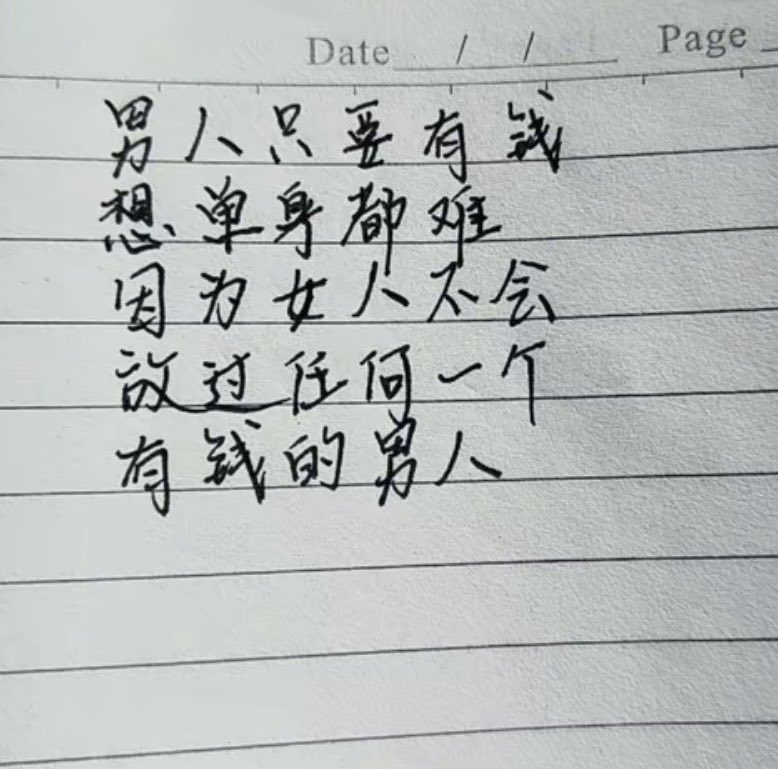 Date / / Page
男人只要有钱
想单身都难
因为女人不会
放过任何一个
有钱的男人